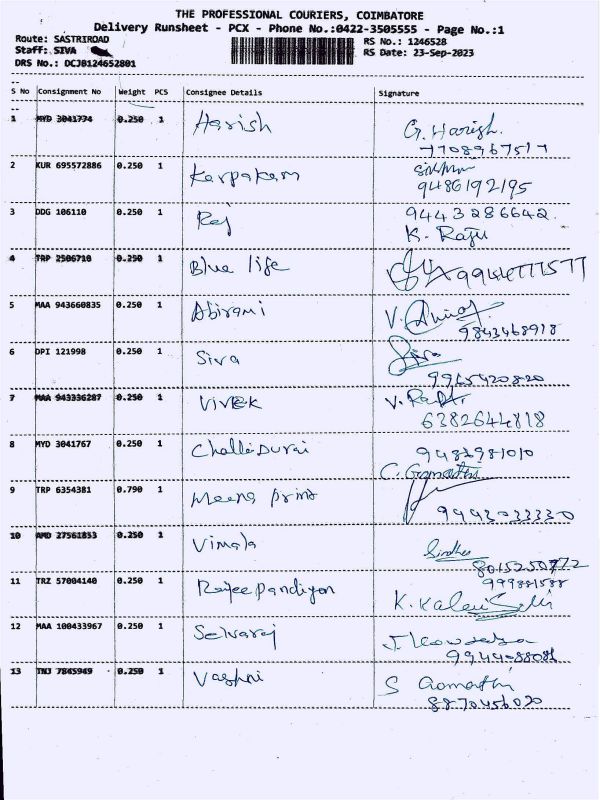 THE PROFESSIONAL COURIERS, COIMBATORE
Delivery Runsheet - PCX - Phone No.:0422-3505555 - Page No.:1
Route: SASTRIROAD RS No.: 1246528
Staff: SIVA RS Date: 23-Sep-2023
DRS No.: DCJB124652801
S No Consignment No Weight PCS Consignee Details Signature
1 MYD 3041774 0.250 1 Harish G. Harish.
7708967517
2 KUR 695572886 0.250 1 Karpakam
9486192195
3 DDG 106110 0.250 1 Raj 9443286642.
K. Raju
4 TRP 2506710 0.250 1 Blue life 9944777577
5 MAA 943660835 0.250 1 Abirami V.
9843468918
6 DPI 121998 0.250 1 Siva Siva
9965420820
7 MAA 943336287 0.250 1 Vivek V.
6382644818
8 MYD 3041767 0.250 1 Challadurai
C. Gomathi
9 TRP 6354381 0.790 1 Meena print
10 AMD 27561853 0.250 1 Vimala Sindhu
11 TRZ 57004140 0.250 1 Rajeepandiyan
K. Kalai Selvi
12 MAA 100433967 0.250 1 Selvaraj
13 TNJ 7845949 0.250 1 Vashni S Gomathi
8870456020